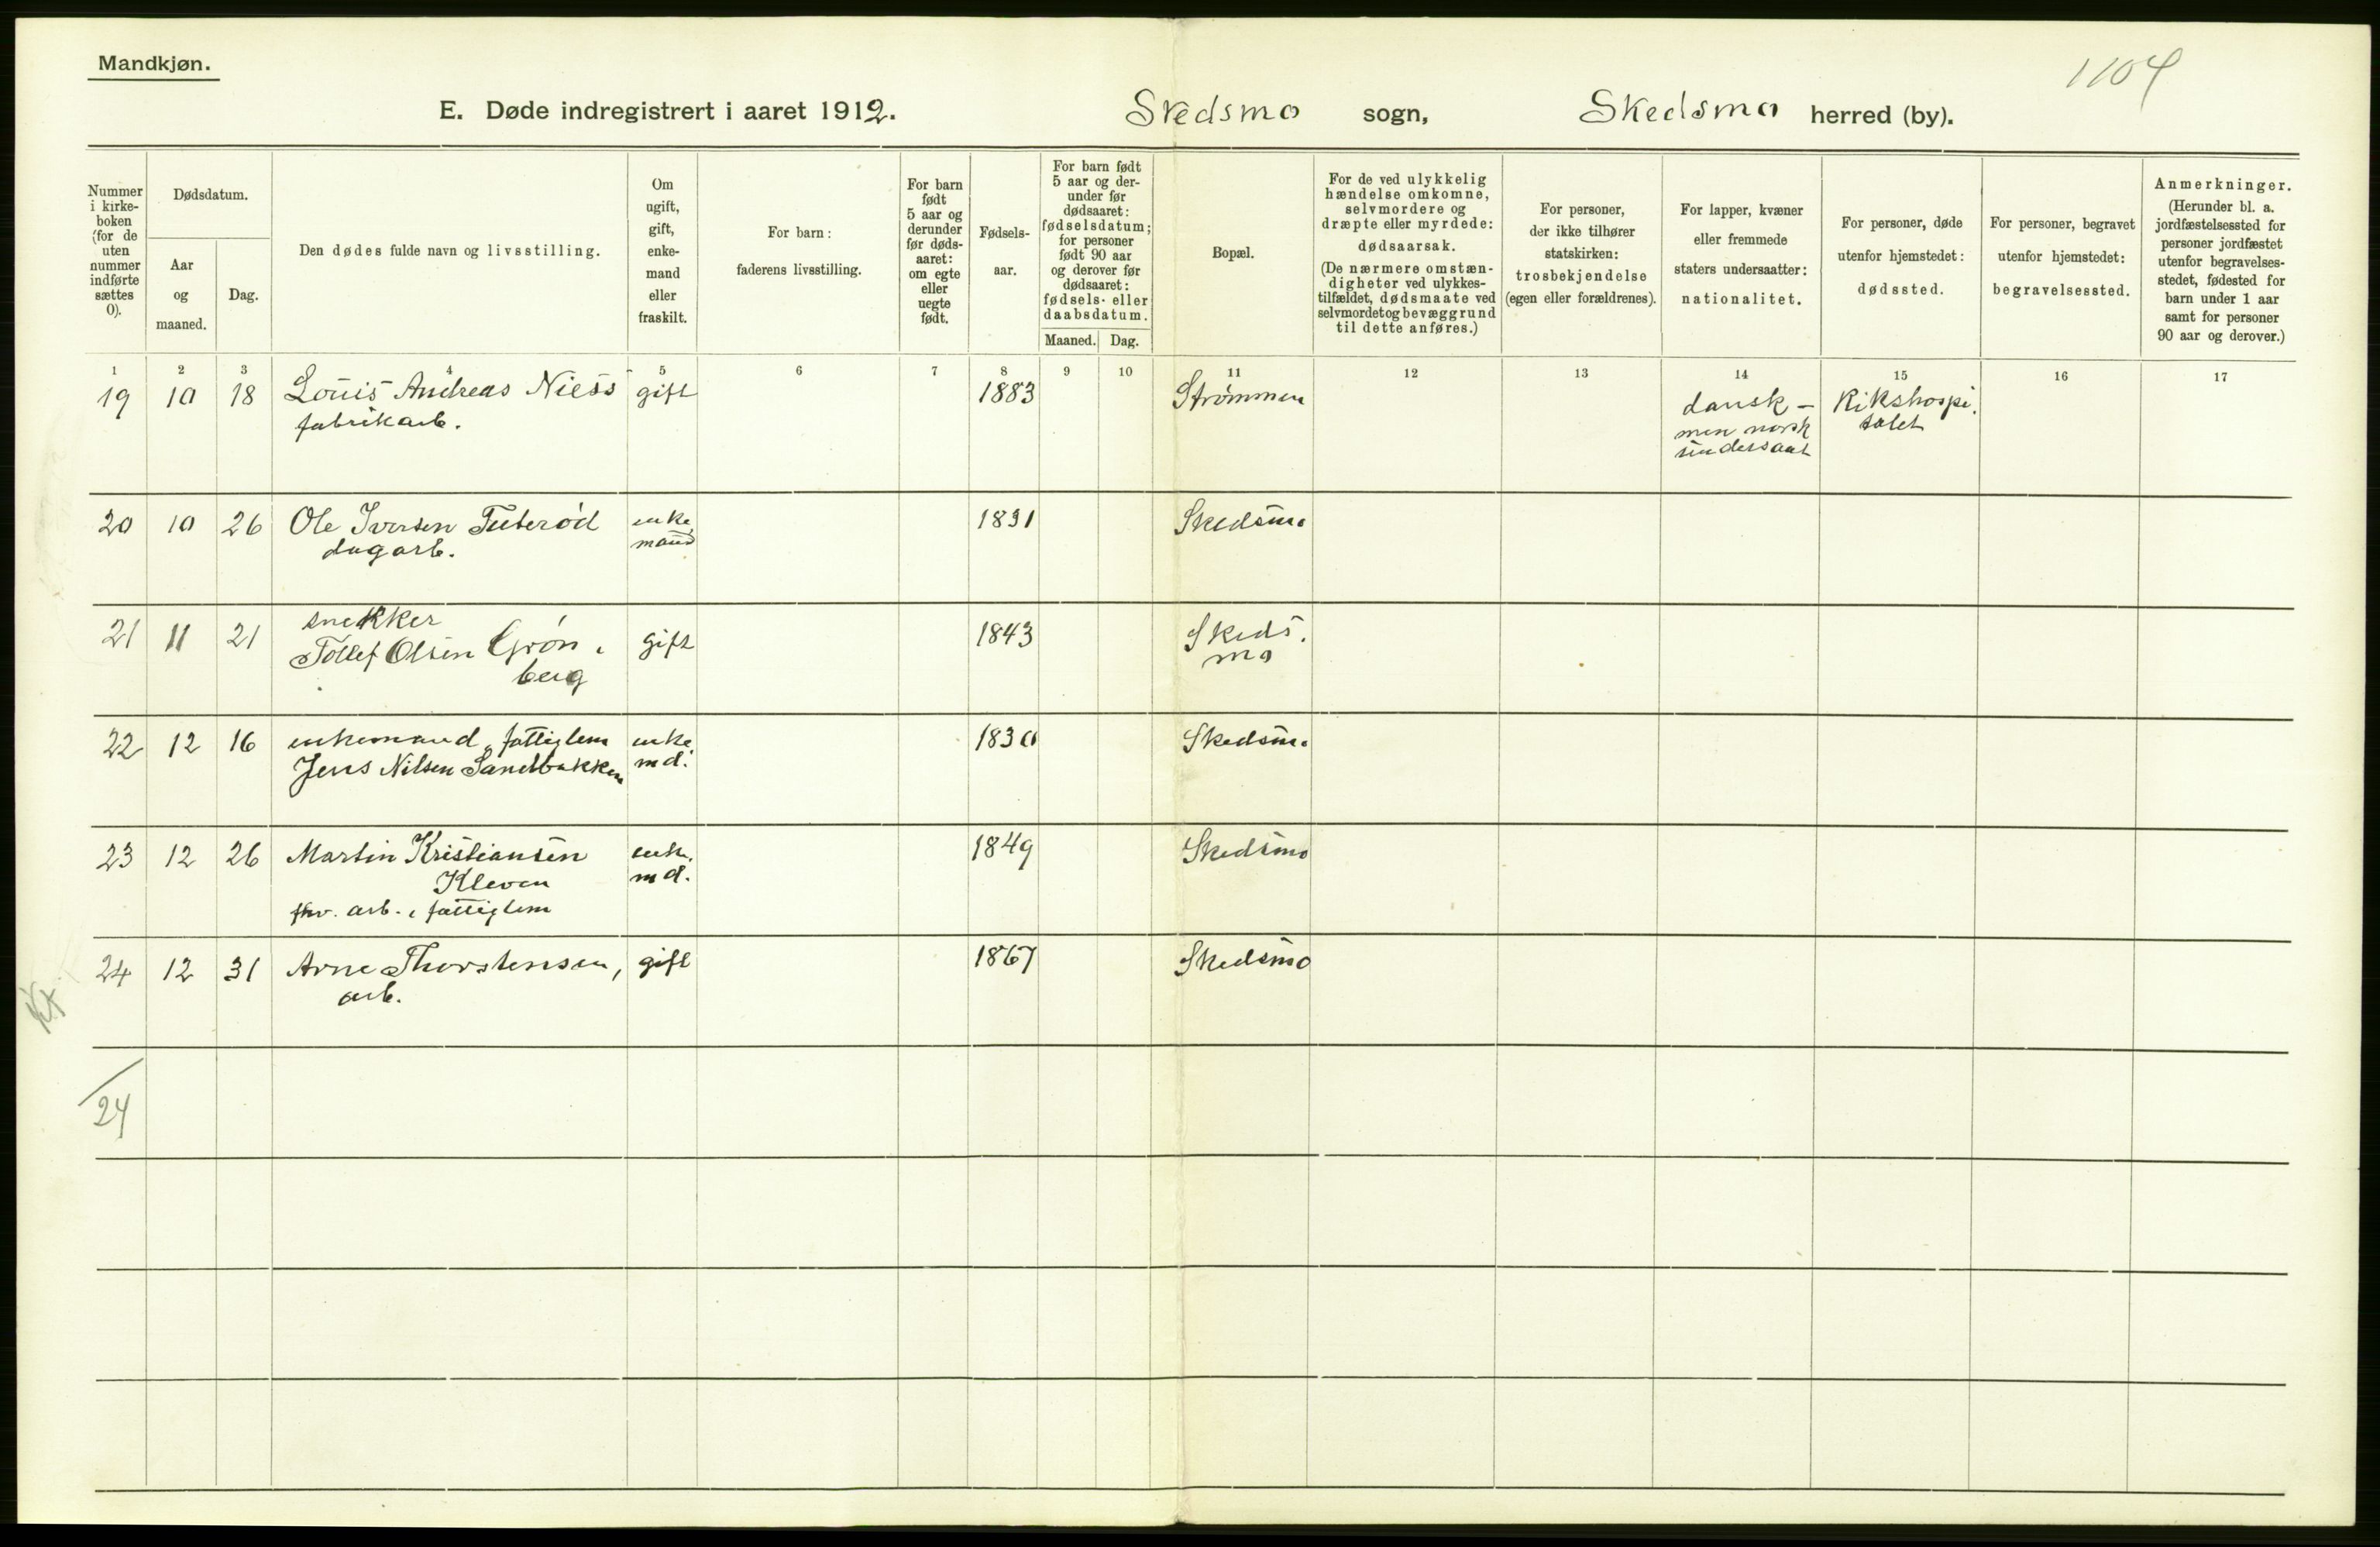 Mandkjøn.
1104
E. Døde indregistrert i aaret 1912. Skedsmo sogn, Skedsmo herred (by).
Nummer i kirke-boken (for de uten nummer indførte sættes 0).
Dødsdatum.
Aar og maaned.
Dag.
Den dødes fulde navn og livsstilling.
Om ugift, gift, enke-mand eller fraskilt.
For barn: faderens livsstilling.
For barn født 5 aar og derunder før døds-aaret: om egte eller uegte født.
Fødsels-aar.
For barn født 5 aar og der-under før dødsaaret: fødselsdatum; for personer født 90 aar og derover før dødsaaret: fødsels- eller daabsdatum.
Maaned. Dag.
Bopæl.
For de ved ulykkelig hændelse omkomne, selvmordere og dræpte eller myrdede: dødsaarsak. (De nærmere omstæn-digheter ved ulykkes-tilfældet, dødsmaate ved selvmordet og bevæggrund til dette anføres.)
For personer, der ikke tilhører statskirken: trosbekjendelse (egen eller forældrenes).
For lapper, kvæner eller fremmede staters undersaatter: nationalitet.
For personer, døde utenfor hjemstedet: dødssted.
For personer, begravet utenfor hjemstedet: begravelsessted.
Anmerkninger. (Herunder bl. a. jordfæstelsessted for personer jordfæstet utenfor begravelses-stedet, fødested for barn under 1 aar samt for personer 90 aar og derover.)
1 2 3 4 5 6 7 8 9 10 11 12 13 14 15 16 17
19 10 18 Louis Andreas Niess gift 1883 Strømmen dansk - Rikshospi.
fabrikarb. men norsk talet
undersaat
20 10 26 Ole Iversen Tuterød enke 1831 Skedsmo
dagarb. mand
snekker
21 11 21 Tollef Olsen Grøn- gift 1843 Skeds.
berg mo
22 12 16 enkemand, fattiglem enke. 1830 Skedsmo
Jens Nilsen Sandbakken md.
23 12 26 Martin Kristiansen enke. 1849 Skedsmo
Kleven md.
fhv. arb., fattiglem
24 12 31 Arne Thorstensen, gift 1867 Skedsmo
arb.
24